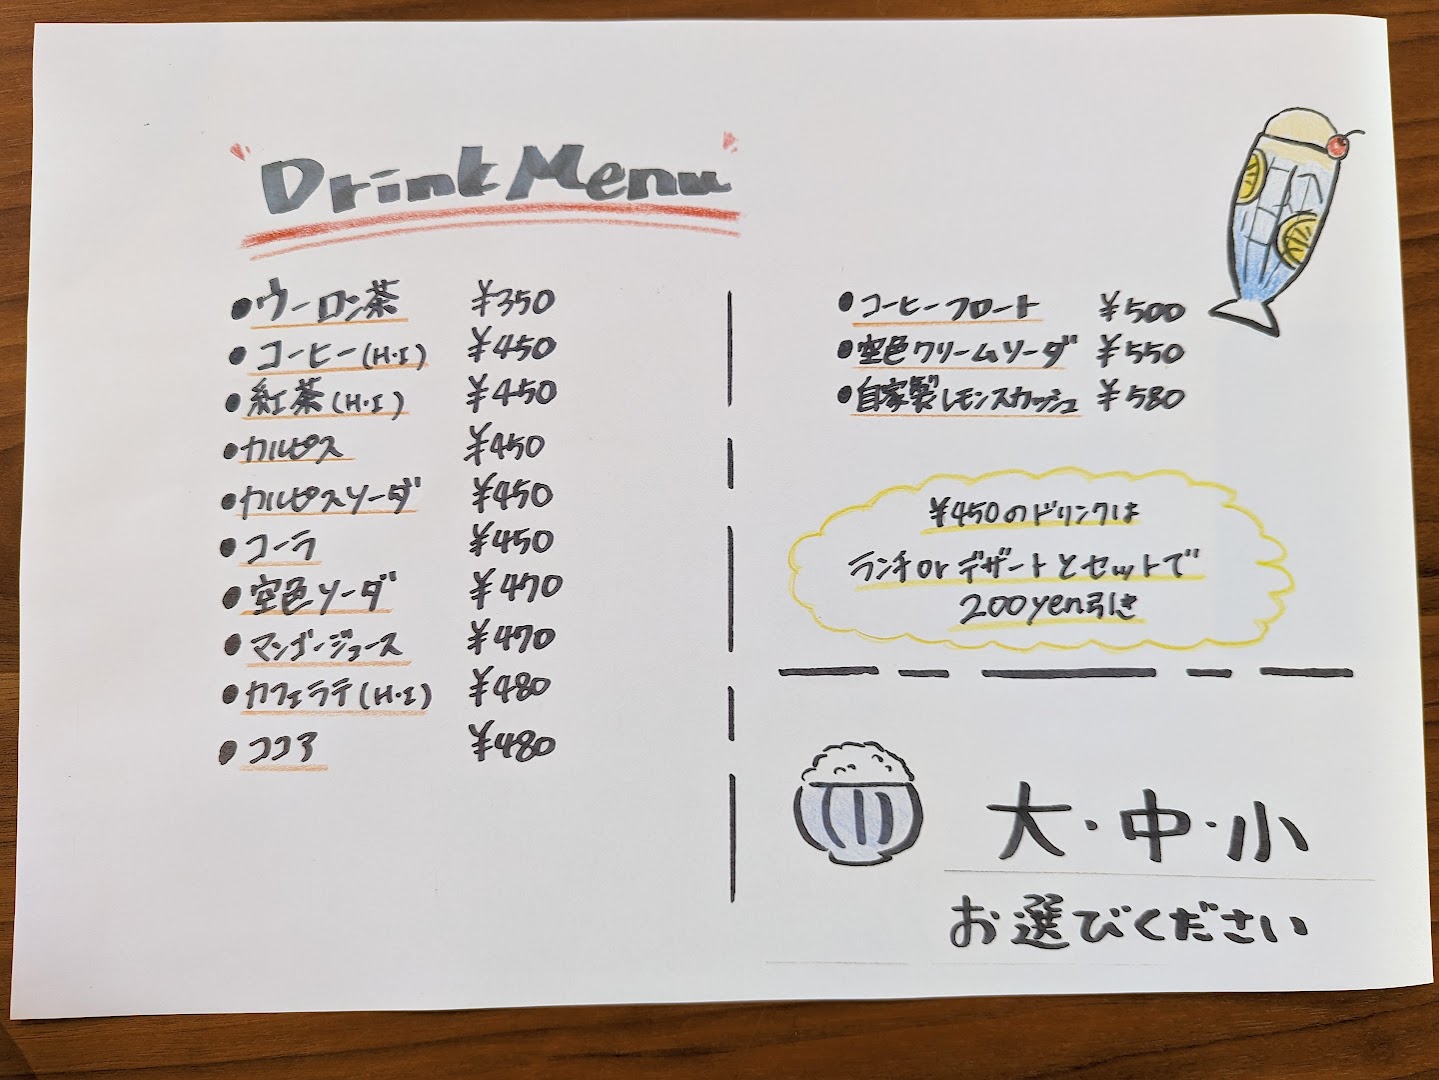 Drink Menu
●ウーロン茶 ¥350
●コーヒー(H・I) ¥450
●紅茶(H・I) ¥450
●カルピス ¥450
●カルピスソーダ ¥450
●コーラ ¥450
●空色ソーダ ¥470
●マンゴージュース ¥470
●カフェラテ(H・I) ¥480
●ココア ¥480
●コーヒーフロート ¥500
●空色クリームソーダ ¥550
●自家製レモンスカッシュ ¥580
¥450のドリンクは
ランチorデザートとセットで
200yen引き
大・中・小
お選びください